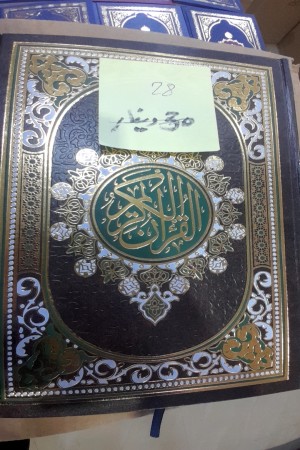 28
30 دينار
القرآن الكريم